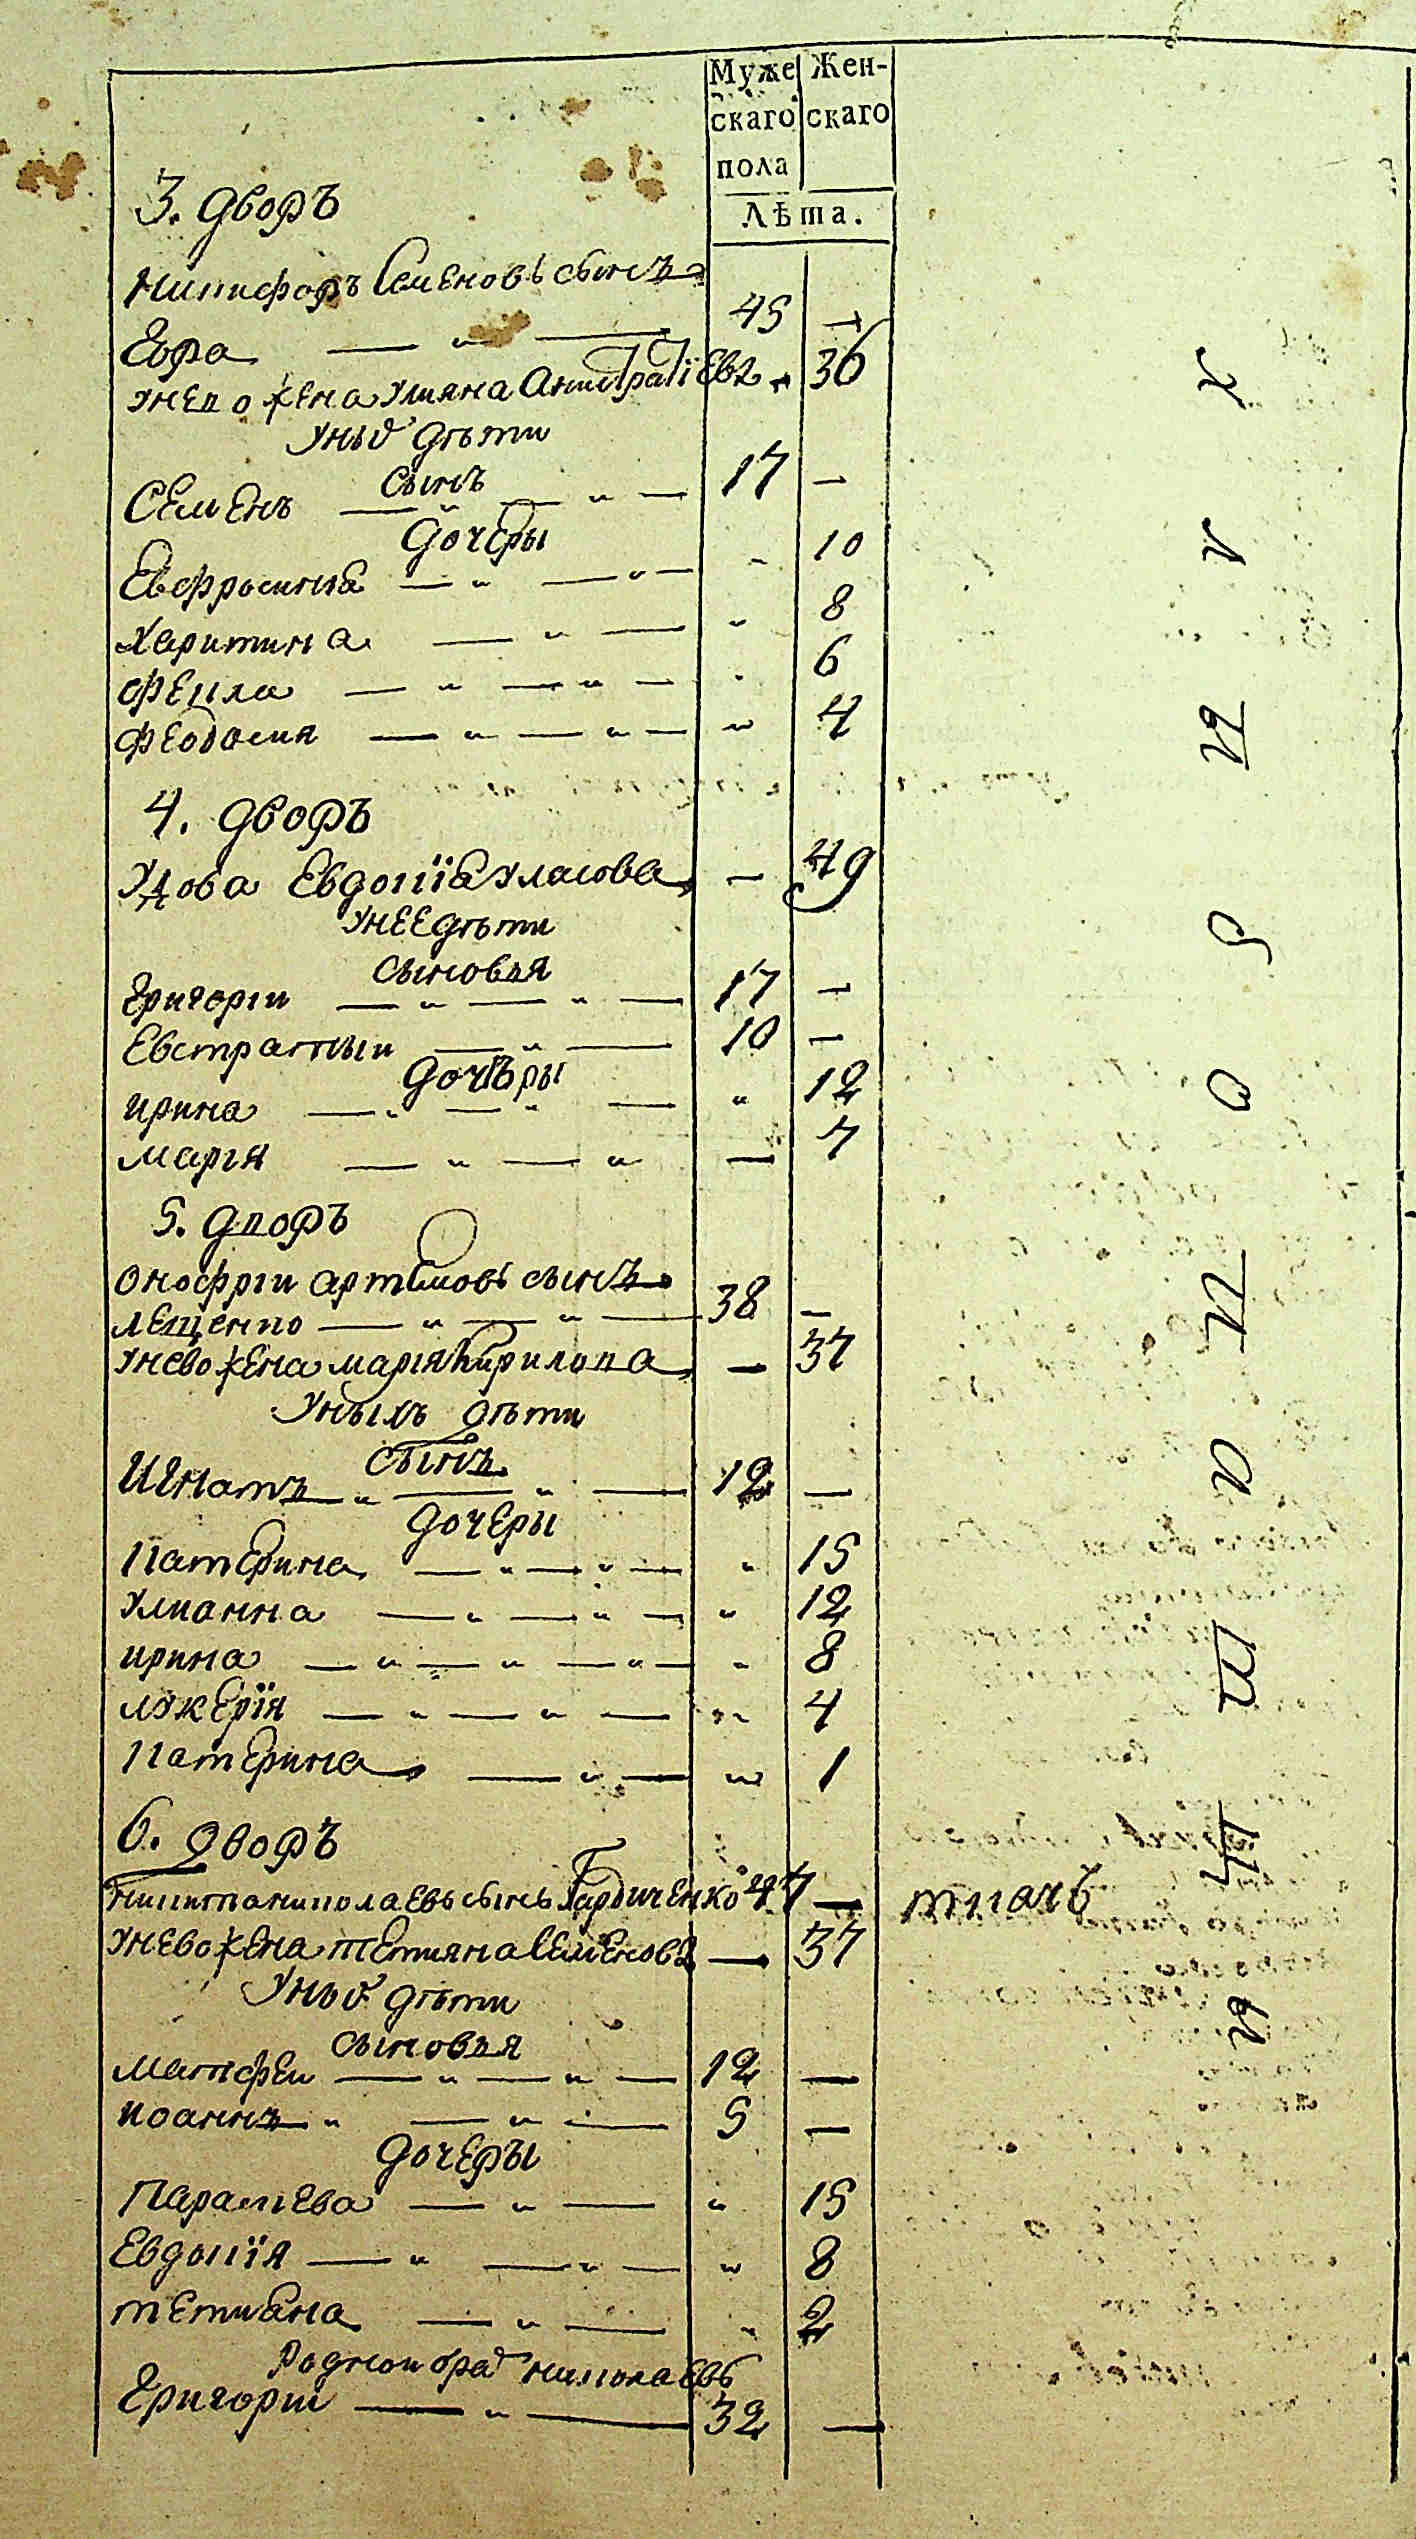 Муже Жен-
скаго скаго
пола
Лѣта.
3. дворъ
Никифоръ Семеновъ сынъ
Бора 45 —
унево жена уляна 36
уныхъ дѣти
сынъ
Семенъ 17 —
дочеры
Евфросиния „ 10
Харитина „ 8
Фекла „ 6
Феодосия „ 4
4. дворъ
Удова Евдокїа Уласова — 49
унее дѣти
сыновья
Григории 17 —
Евстратыи 10 —
дочѣры
ирина „ 12
мария — 7
5. дворъ
Онофрги артемовъ сынъ
лещенко 38 —
унево жена мария кирилова — 37
унымъ дѣти
сынъ
Игнатъ 12 —
дочеры
Катерина „ 15
улианна „ 12
ирина „ 8
лукерїя „ 4
Катерина „ 1
6. дворъ
никита николаевъ сынъ Гардиченко 47 — ткачъ
унево жена тетяна семенова — 37
уныхъ дѣти
сыновья
матфеи 12 —
иоаннъ 5 —
дочеры
Параскева „ 15
Евдокїя „ 8
тетиана „ 2
Роднои братъ николаевъ
Григории 32 —